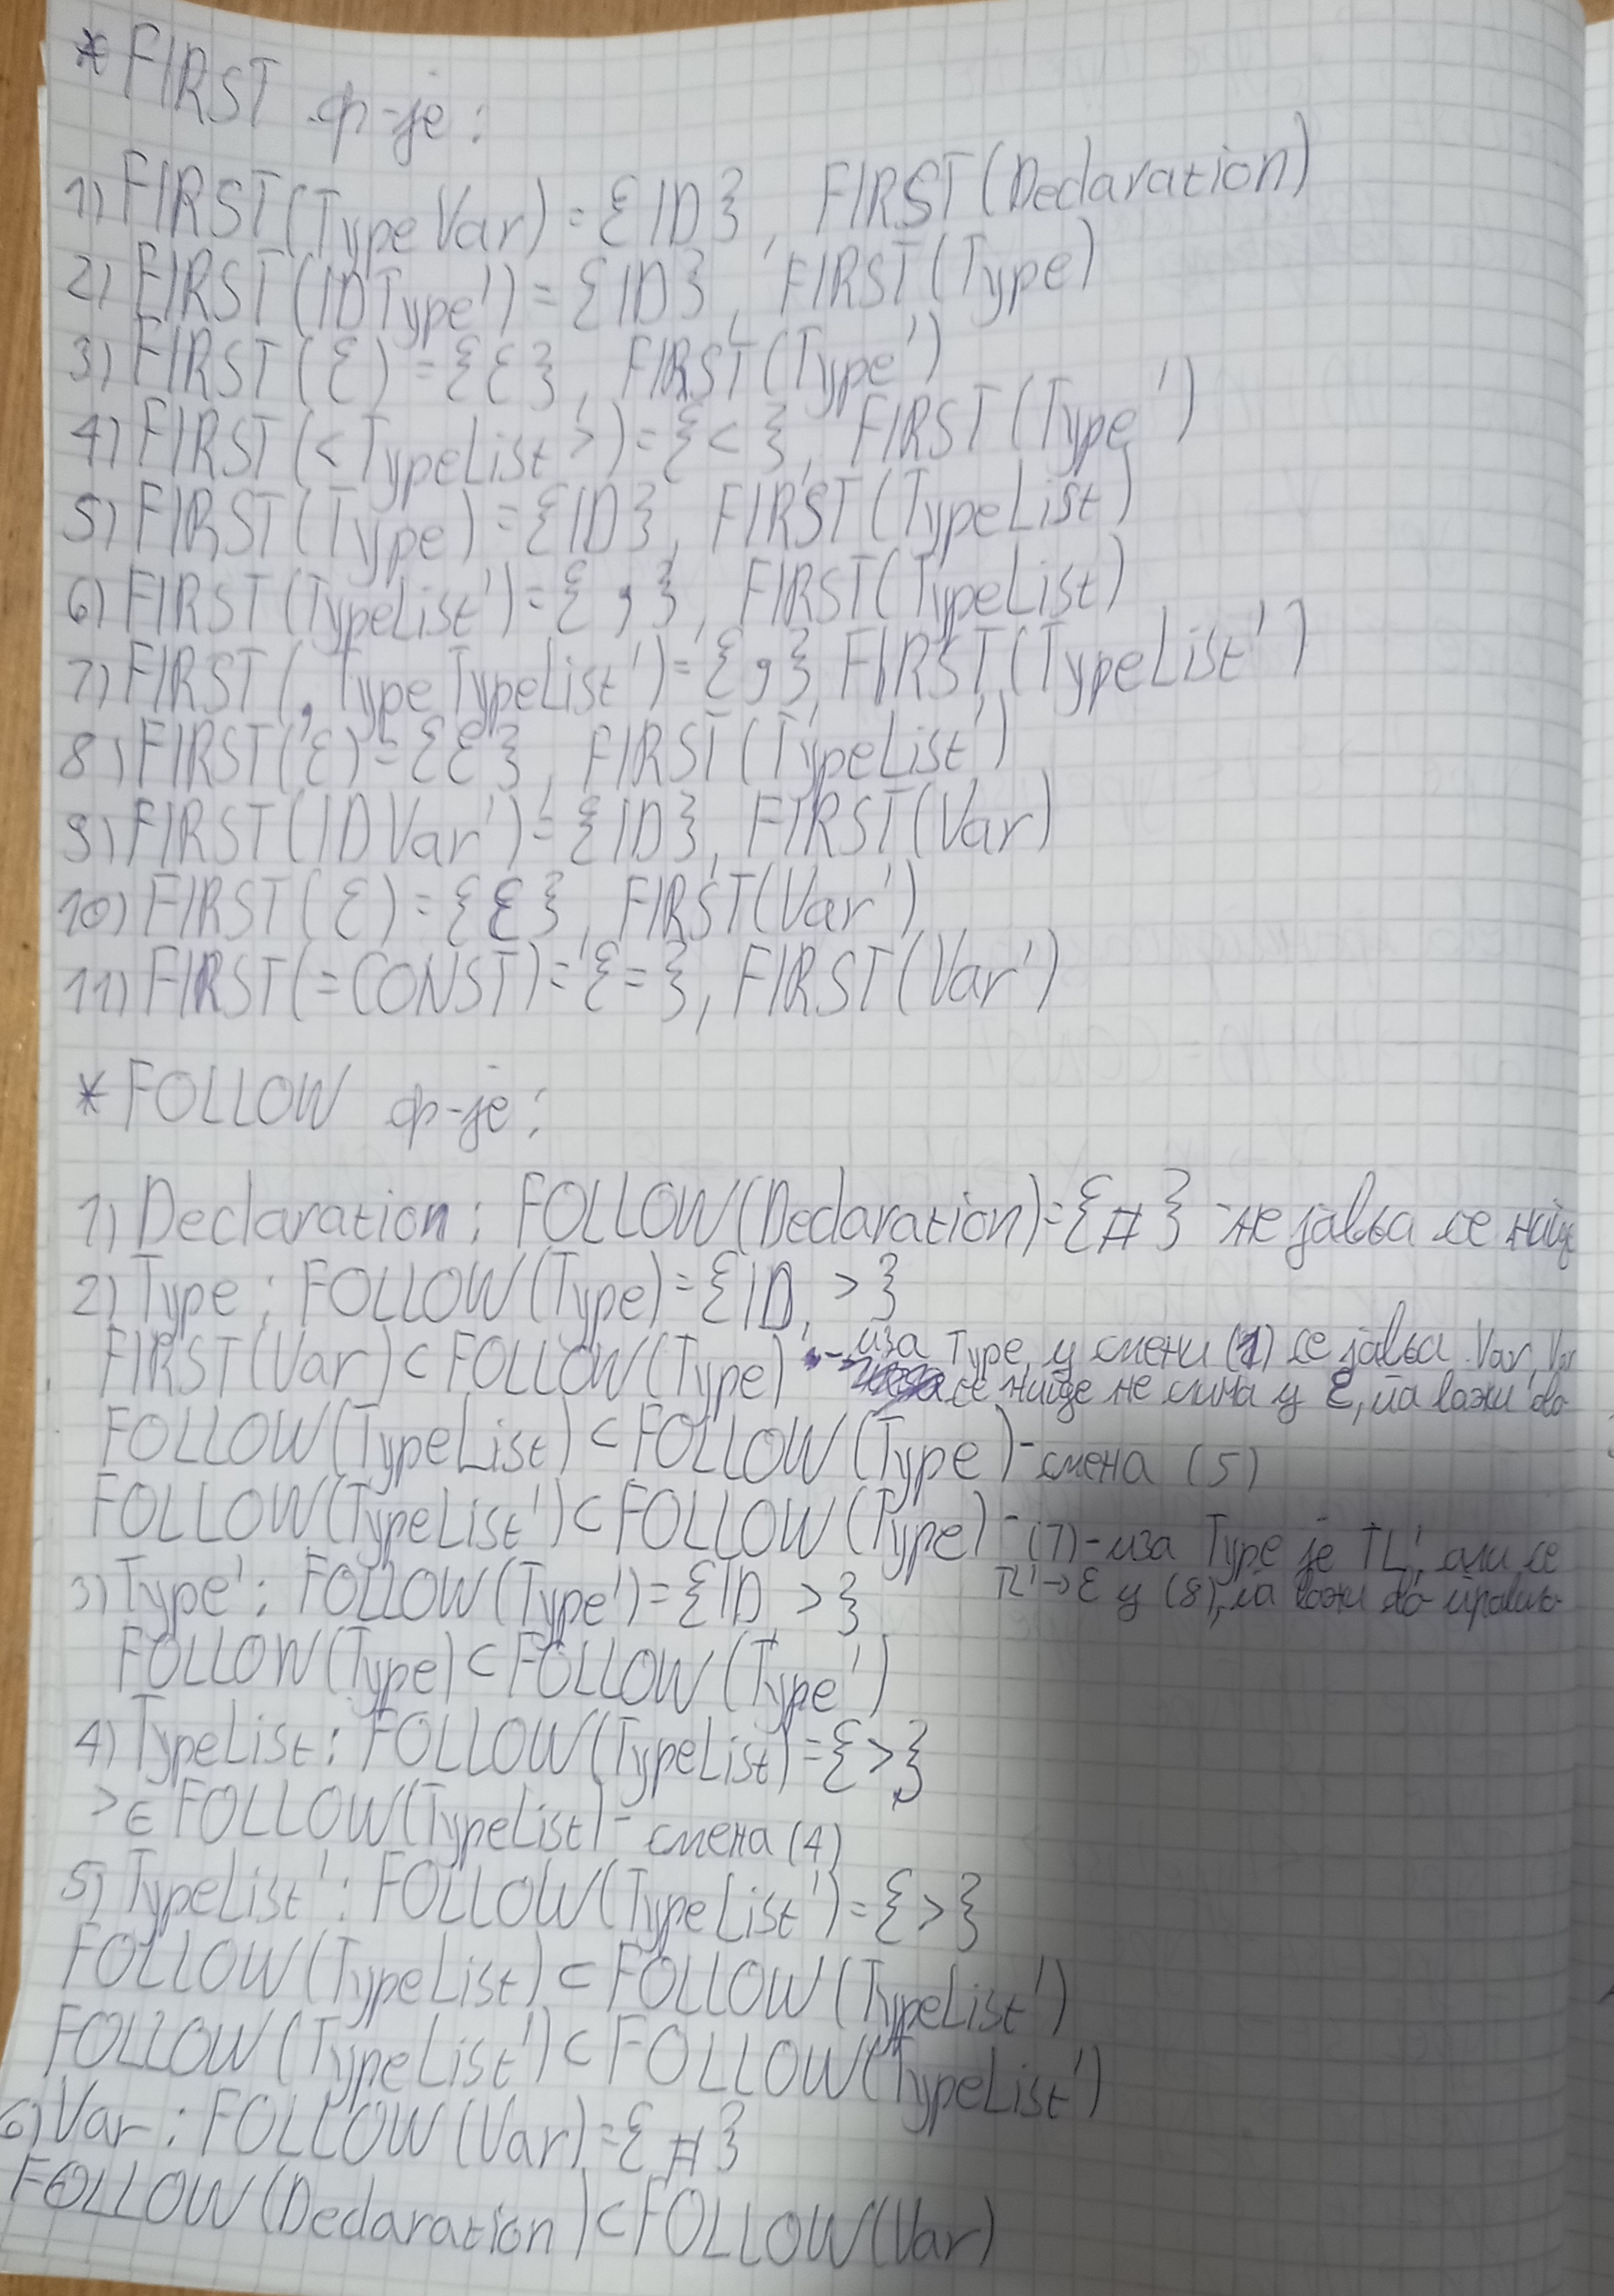 * FIRST ф-је:
1) FIRST(Type Var) = {ID}, FIRST(Declaration)
2) FIRST(ID Type') = {ID}, FIRST(Type)
3) FIRST(ε) = {ε}, FIRST(Type')
4) FIRST(< TypeList >) = {<}, FIRST(Type')
5) FIRST(Type) = {ID}, FIRST(TypeList)
6) FIRST(TypeList') = {,}, FIRST(TypeList)
7) FIRST(, Type TypeList') = {,}, FIRST(TypeList')
8) FIRST(ε) = {ε}, FIRST(TypeList')
9) FIRST(ID Var') = {ID}, FIRST(Var)
10) FIRST(ε) = {ε}, FIRST(Var')
11) FIRST(= CONST) = {=}, FIRST(Var')
* FOLLOW ф-је:
1) Declaration: FOLLOW(Declaration) = {#} - не јавља се нигде
2) Type: FOLLOW(Type) = {ID, >}
FIRST(Var) ⊂ FOLLOW(Type) - иза Type, у смени (1) се јавља Var, Var
се нигде не слика у ε, па важи ово
FOLLOW(TypeList) ⊂ FOLLOW(Type) - смена (5)
FOLLOW(TypeList') ⊂ FOLLOW(Type) - (7) - иза Type је TL', али се
TL' → ε у (8), па важи ово
3) Type': FOLLOW(Type') = {ID, >}
FOLLOW(Type) ⊂ FOLLOW(Type')
4) TypeList: FOLLOW(TypeList) = {>}
> ∈ FOLLOW(TypeList) - смена (4)
5) TypeList': FOLLOW(TypeList') = {>}
FOLLOW(TypeList) ⊂ FOLLOW(TypeList')
FOLLOW(TypeList') ⊂ FOLLOW(TypeList')
6) Var: FOLLOW(Var) = {#}
FOLLOW(Declaration) ⊂ FOLLOW(Var)